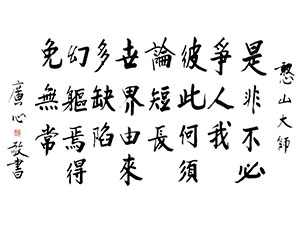 憨山大師
是非不必
爭人我
彼此何須
論短長
世界由來
多缺陷
幻軀焉得
免無常
廣心敬書